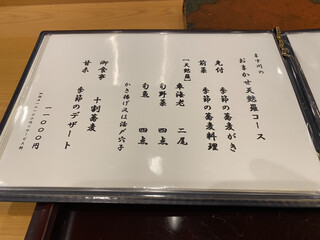 ます川の
おまかせ天麩羅コース
先付 季節の蕎麦がき
前菜 季節の蕎麦料理
【天麩羅】
車海老 二尾
旬野菜 四点
旬魚 四点
かき揚げ又は海〆穴子
御食事 十割蕎麦
甘味 季節のデザート
一一〇〇〇円